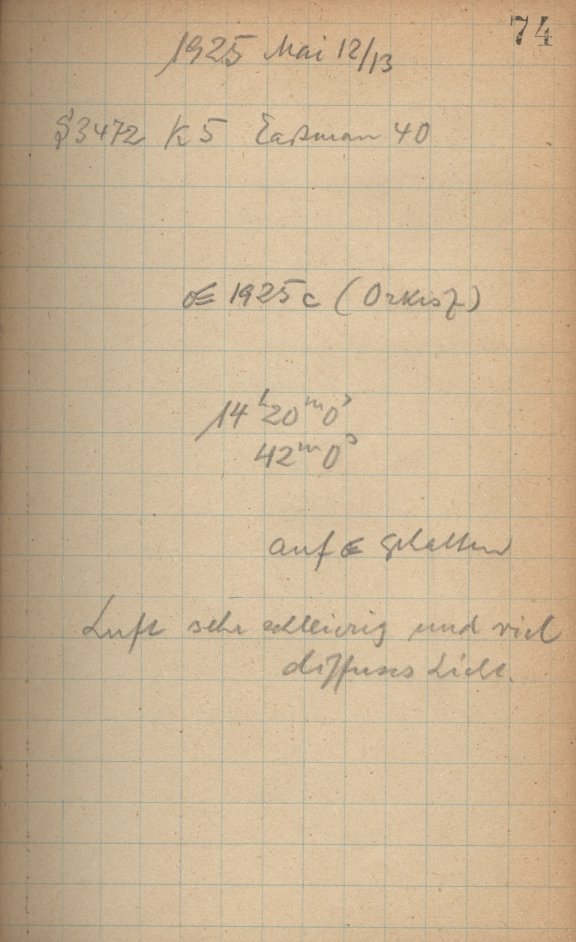 74
1925 Mai 12/13
§3472 K5 Eastman 40
☄ 1925c (Orkisz)
14ʰ20ᵐ0ˢ
42ᵐ0ˢ
auf ☄ gehalten
Luft sehr schleirig und viel
diffuses Licht.